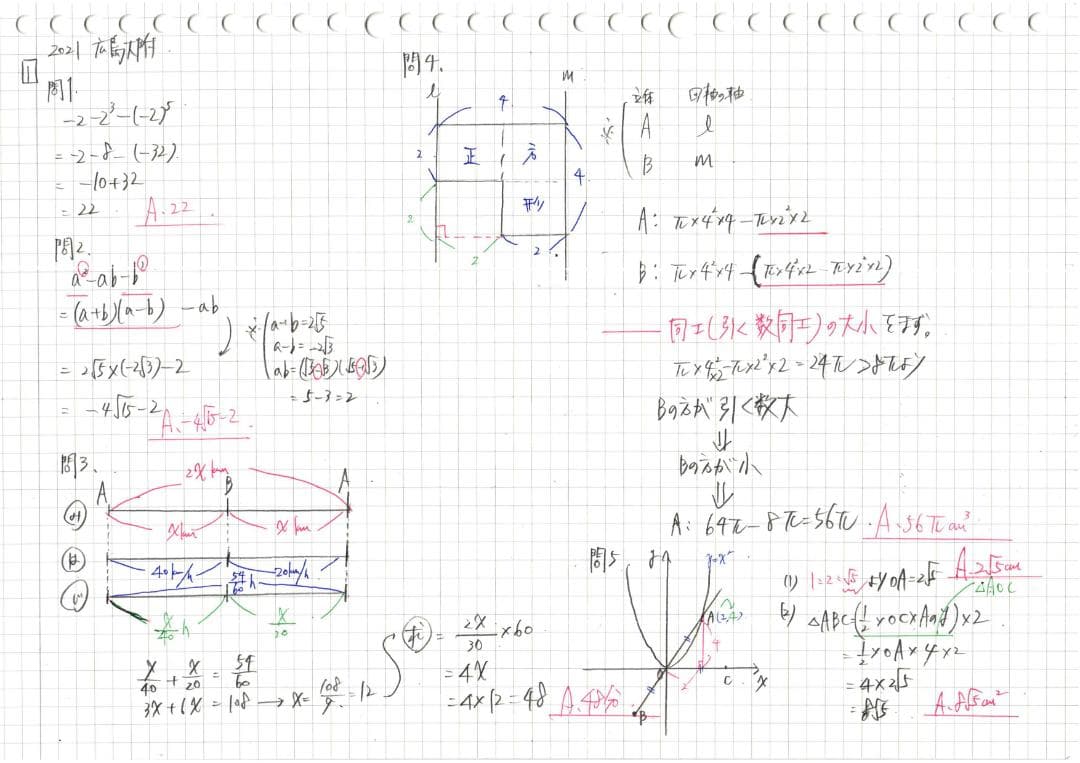 2021 広島大附
1
問1.
-2-2³-(-2)⁵
= -2-8-(-32)
= -10+32
= 22 A.22
問2.
a²-ab-b²
=(a+b)(a-b) -ab
※ a+b=2√5
a-b=-2√3
ab=(√5-√3)(√5+√3)
= 5-3=2
= 2√5×(-2√3)-2
= -4√15-2 A.-4√15-2
問3.
2x km
A B A
x km x km
40km/h 20km/h
54/60 h
x/40 h x/20
x/40 + x/20 = 54/60
3x+6x = 108 → x = 108/9 = 12
= 2x/30 ×60
= 4x
= 4×12=48 A.48分
問4.
l m
4
2 正 方 4
形
2
2 2
※ 立体 回転の軸
A l
B m
A: π×4²×4-π×2²×2
B: π×4²×4-(π×4²×2-π×2²×2)
同士(引く数同士)の大小をます。
π×4²×2-π×2²×2=24π>8πより
Bの方が引く数大
⇓
Bの方が小
⇓
A: 64π-8π=56π. A.56πcm³
問5
y y=x²
A(2,4)
4
O 2 C x
B
(1) 1=2=√5 よりOA=2√5 A.2√5cm
△AOC
(2) △ABC=(1/2×OC×Aのy)×2
=1/2×OA×4×2
=4×2√5
=8√5 A.8√5cm²